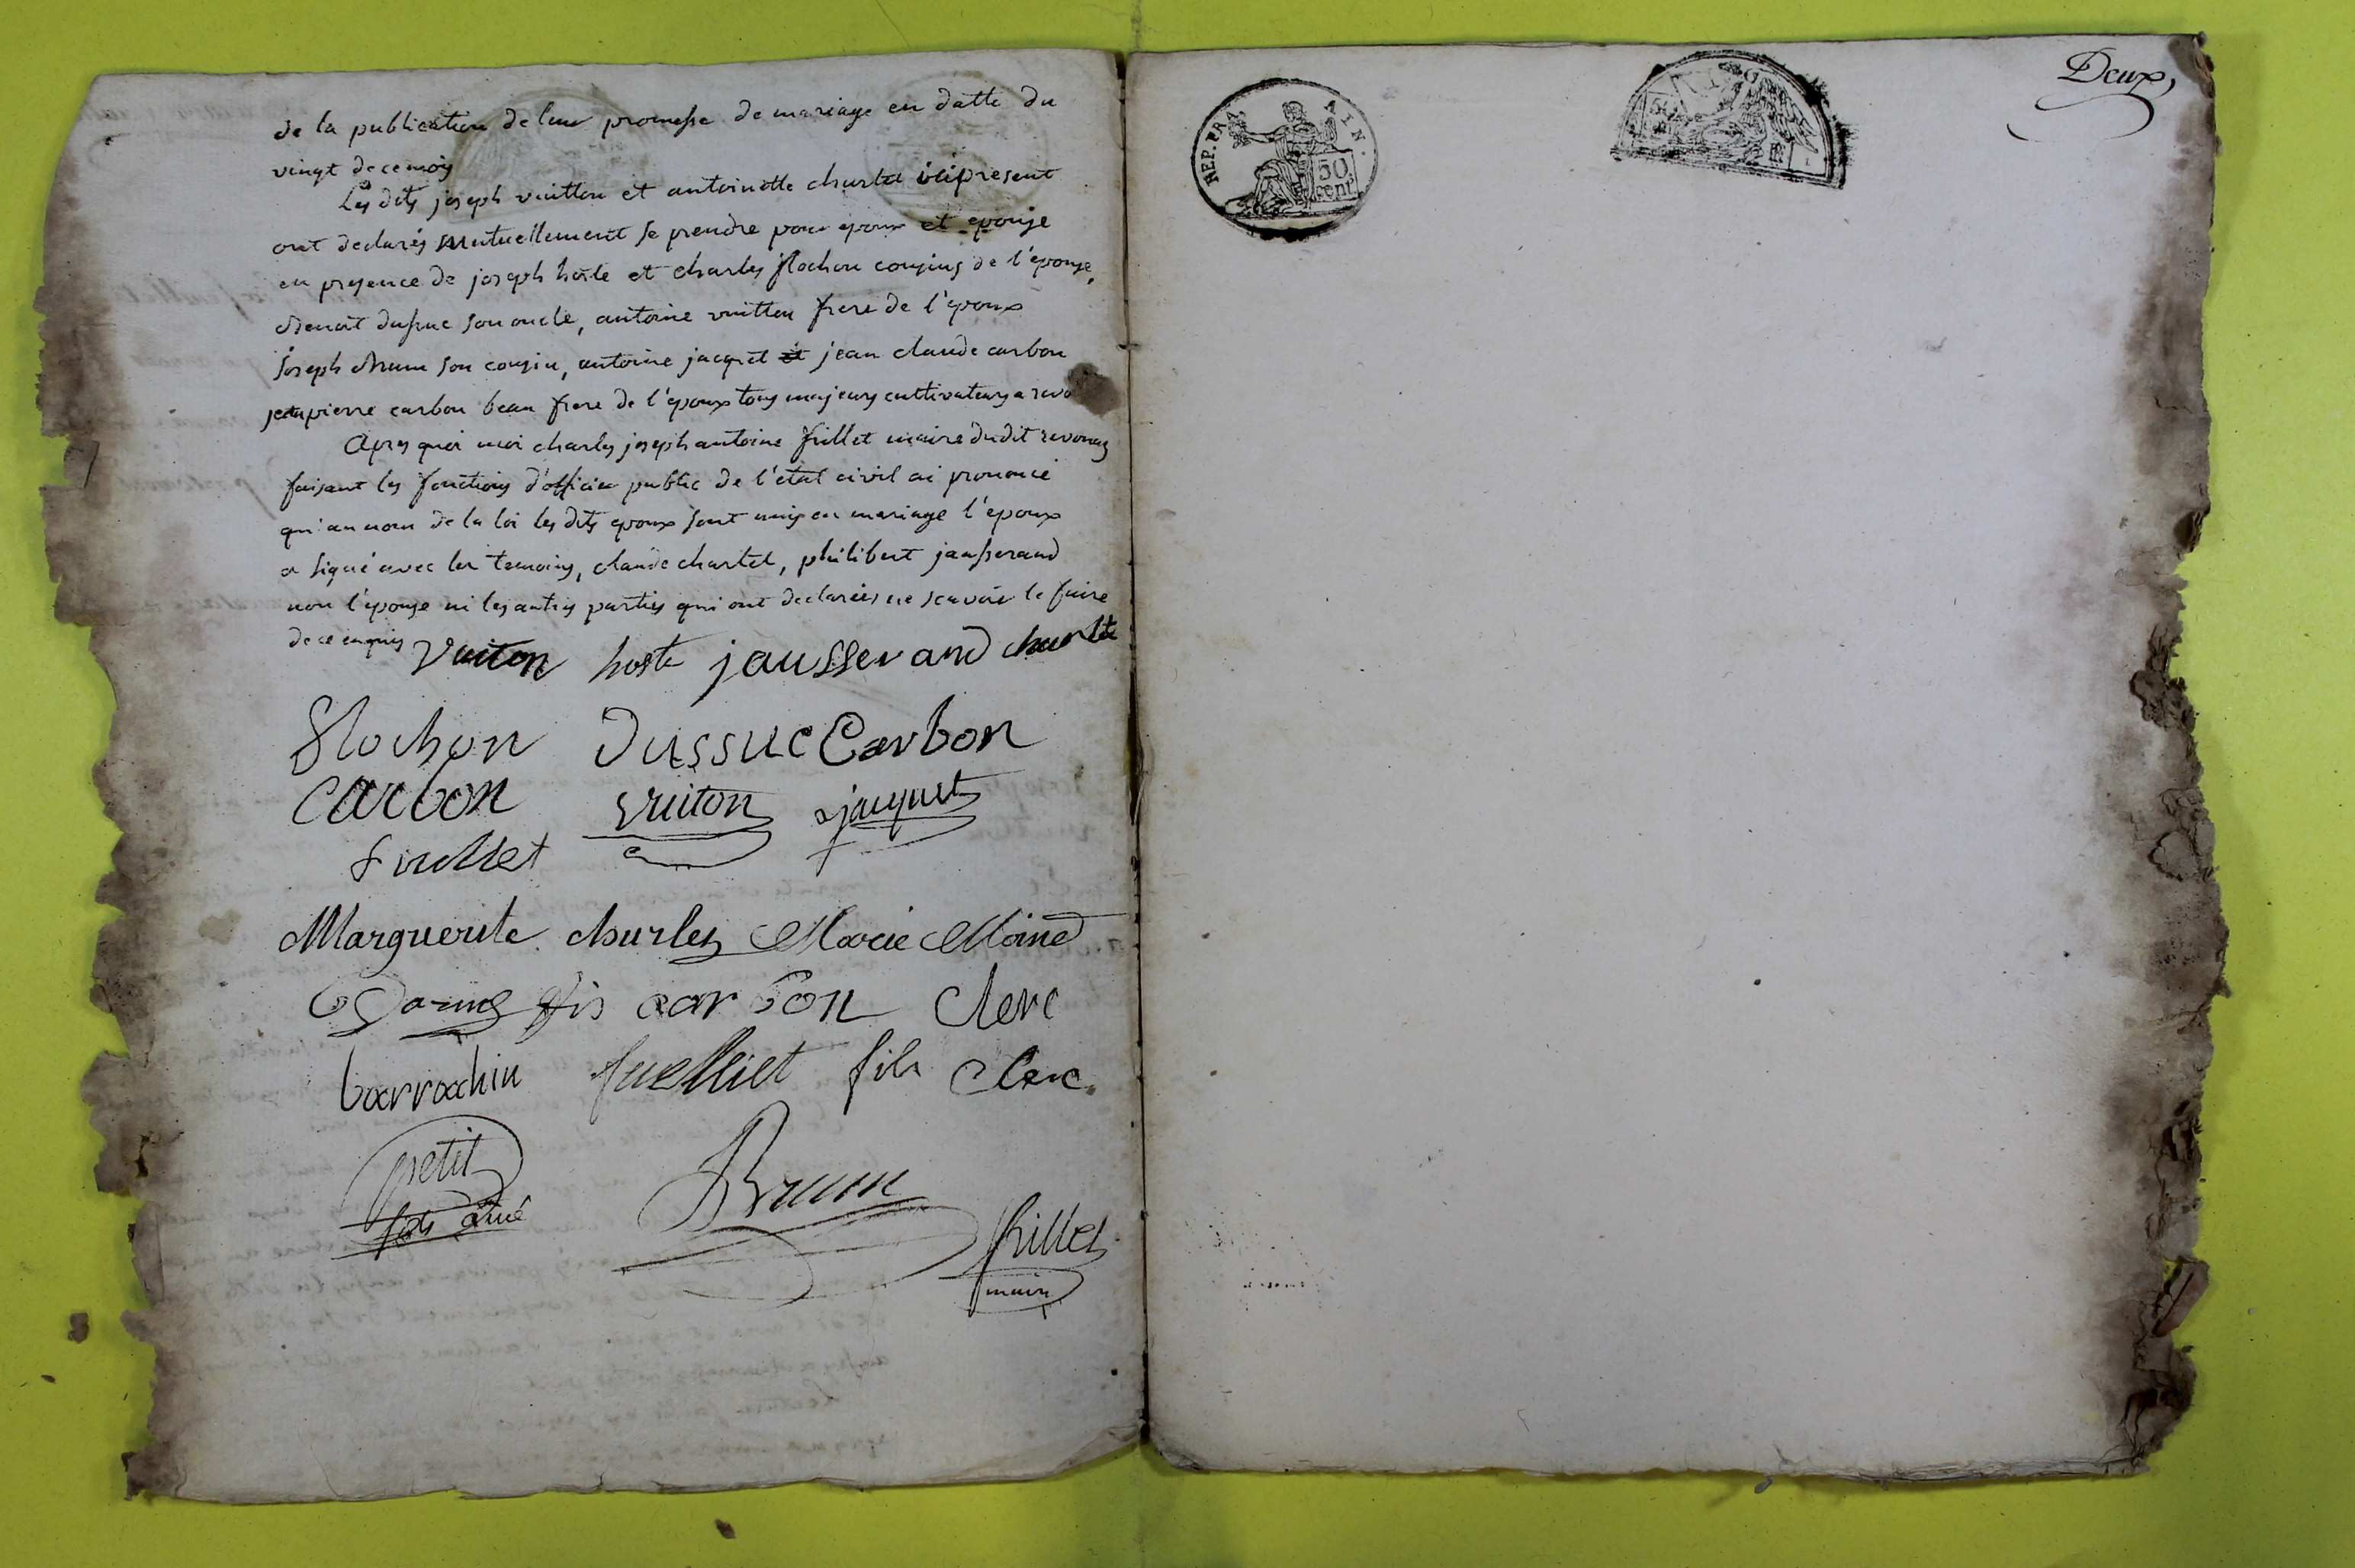 de la publication de leur promesse de mariage en datte du
vingt de ce mois
Les dits joseph vuitton et antoinette chartet ici present
ont declarés mutuellement se prendre pour epoux et epouse
en presence de joseph hoste et charles flochon cousins de l'épouse,
benoit dussuc son oncle, antoine vuitton frere de l'époux
joseph brun son cousin, antoine jacquet et jean claude carbon
jean pierre carbon beau frere de l'époux tous majeurs cultivateurs a revo
Apres quoi moi charles joseph antoine frillet maire dudit revonas
faisant les fonctions d'officier public de l'état civil ai prononcé
qu'au nom de la loi les dits epoux sont unis en mariage l'époux
a signé avec les temoins, claude chartet, philibert jausserand
non l'épouse ni les autres parties qui ont declarées ne scavoir le faire
de ce enquis vuiton hoste jausserand chartet
flochon Dussuc Carbon
Carbon vuiton jacquet
Marguerite charles Marie Moine
fis carbon Clerc
barrachin fuelliet fils Clerc
petit
fils ainé
Brunn
frillet
maire
Deux,
REP. FRA
50
cent